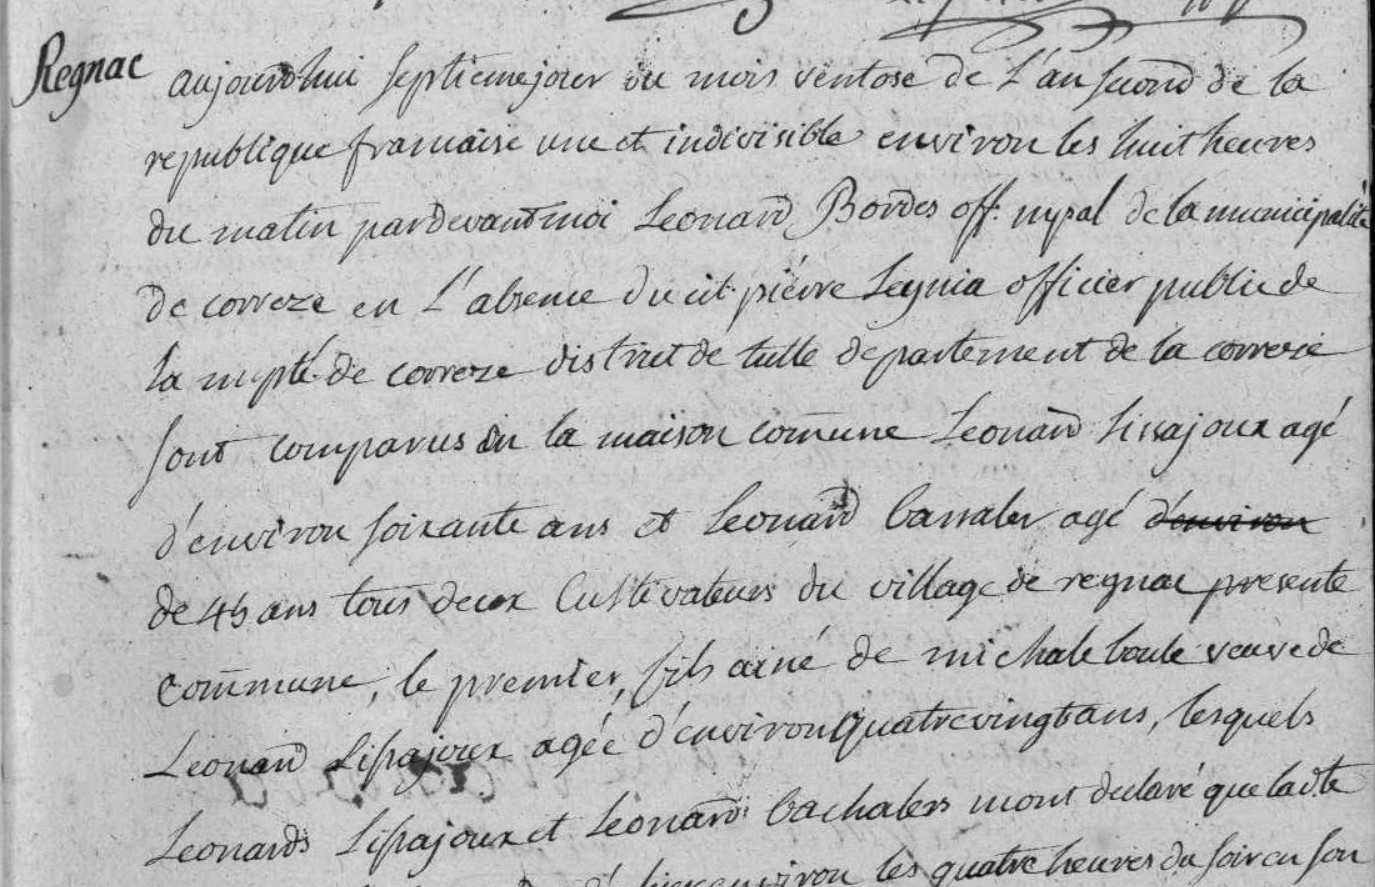 Regnac
aujourdhui septieme jour du mois ventose de L'an second de la
republique francaise une et indivisible environ les huit heures
du matin pardevant moi Leonard Bordes off. mpal de la municipalité
de correze en L'absence du cit. piérre Leynia officier public de
la mpté de correze district de tulle departement de la correze
sont comparus en la maison comune Leonard Lissajoux agé
d'environ soixante ans et Leonard bassaler agé d'environ
de 45 ans tous deux Cultivateurs du village de regnac presente
commune, le premier, fils ainé de michale boule veuve de
Leonard Lissajoux agée d'environ quatrevingt ans, lesquels
Leonards Lissajoux et Leonard bachalers mont declaré que ladte
hier environ les quatre heures du soir en son